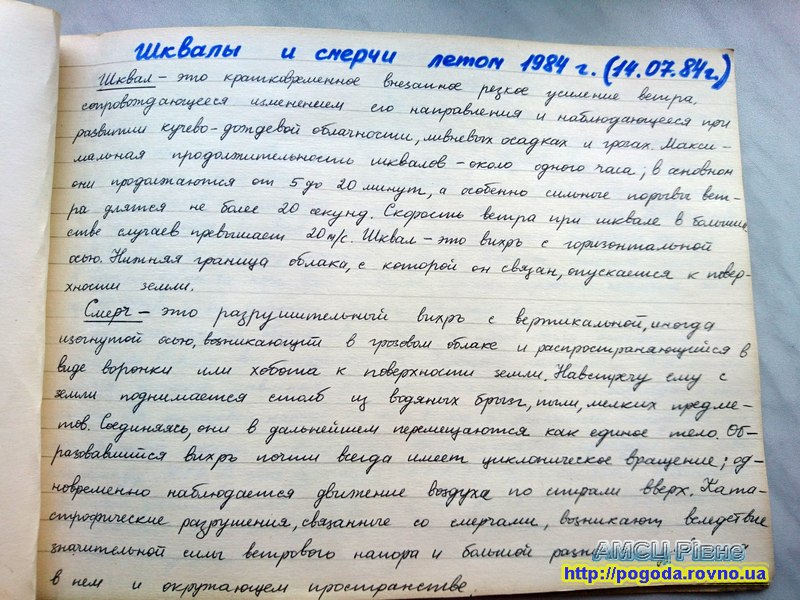 Шквалы и смерчи летом 1984 г. (14.07.84г.)
Шквал – это кратковременное внезапное резкое усиление ветра,
сопровождающееся изменением его направления и наблюдающееся при
развитии кучево-дождевой облачности, ливневых осадках и грозах. Макси-
мальная продолжительность шквалов – около одного часа; в основном
они продолжаются от 5 до 20 минут, а особенно сильные порывы вет-
ра длятся не более 20 секунд. Скорость ветра при шквале в большин
стве случаев превышает 20 м/с. Шквал – это вихрь с горизонтальной
осью. Нижняя граница облака, с которой он связан, опускается к повер-
хности земли.
Смерч – это разрушительный вихрь с вертикальной, иногда
изогнутой осью, возникающий в грозовом облаке и распространяющийся в
виде воронки или хобота к поверхности земли. Навстречу ему с
земли поднимается столб из водяных брызг, пыли, мелких предме-
тов. Соединяясь, они в дальнейшем перемещаются как единое тело. Об-
разовавшийся вихрь почти всегда имеет циклоническое вращение; од-
новременно наблюдается движение воздуха по спирали вверх. Ката-
строфические разрушения, связанные со смерчами, возникают вследствие
значительной силы ветрового напора и большой
в нем и окружающем пространстве.
АМСЦ Рівне
http://pogoda.rovno.ua